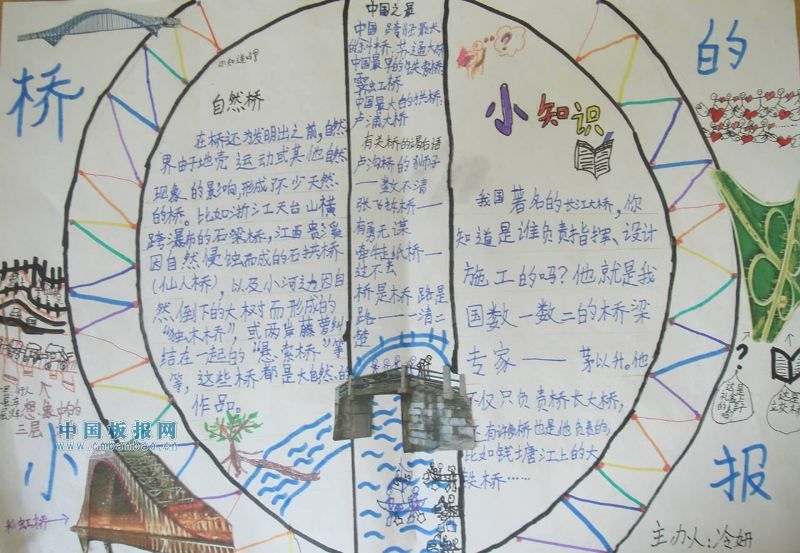 桥
的
小
报
你知道吗?
自然桥
在桥还为发明出之前,自然
界由于地壳运动或其他自然
现象的影响,形成不少天然
的桥。比如浙江天台山横
跨瀑布的石梁桥,江西贵溪
因自然侵蚀而成的石拱桥
(仙人桥),以及小河边因自
然倒下的大树而形成的
"独木桥",或两岸藤萝纠
结在一起的"悬索桥"等
等,这些桥都是大自然的
作品。
中国之最
中国跨径最大
的斜桥:苏通大桥
中国最早的铁索桥:
霁虹桥
中国最大的拱桥:
卢浦大桥
有关桥的谒后语
卢沟桥的狮子
——数不清
张飞拆桥——
有勇无谋
牵牛走纸桥——
过不去
桥是桥路是
路——一清二
楚
小知识
我国著名的长江大桥,你
知道是谁负责指挥、设计
施工的吗?他就是我
国数一数二的桥梁
专家——茅以升。他
不仅只负责桥长大桥,
还有许多桥也是他负责的,
比如钱塘江上的大
铁桥……
想象中的
三层
彩虹桥→
?
主办人:冷妍
中国板报网
www.cnbanbao.cn